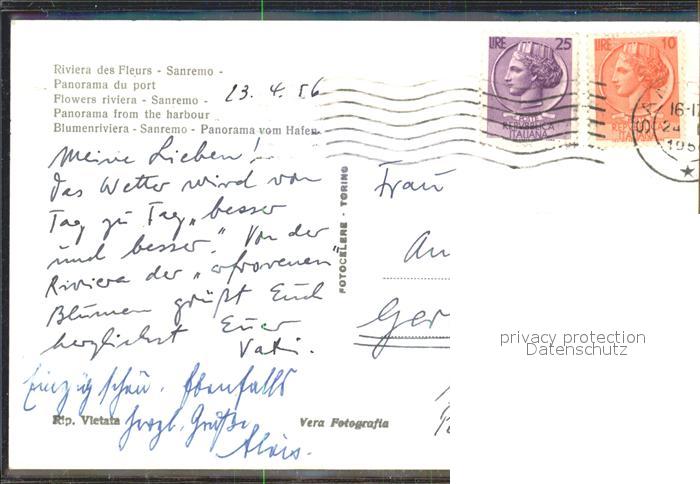 Riviera des Fleurs - Sanremo -
Panorama du port
Flowers riviera - Sanremo -
Panorama from the harbour
Blumenriviera - Sanremo - Panorama vom Hafen
23. 4. 56
Meine Lieben!
Das Wetter wird von
Tag zu Tag „besser
und besser." Von der
Riviera der „erfrorenen"
Blumen grüßt Euch
herzlichst Euer
Vati.
Einzig schön. Ebenfalls
herzl. Grüße
Alois.
Rip. Vietata
Vera Fotografia
FOTOCELERE - TORINO
LIRE 25
REPVBBLICA
ITALIANA
LIRE 10
REPVBBLICA
ITALIANA
16-17
195
Frau
An
Ger
privacy protection
Datenschutz